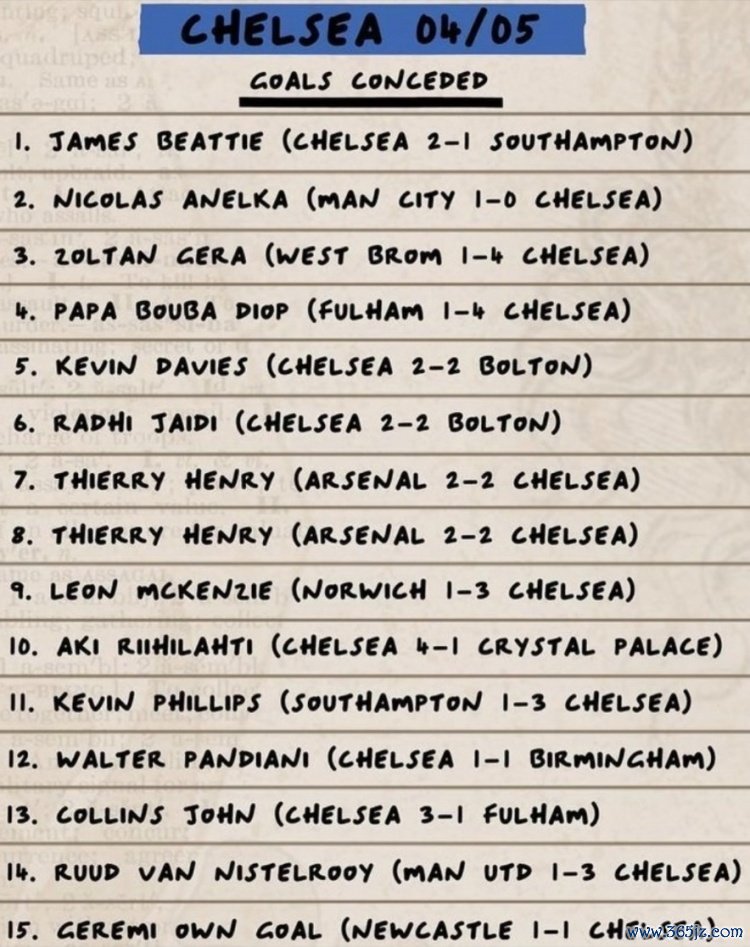 CHELSEA 04/05
GOALS CONCEDED
1. JAMES BEATTIE (CHELSEA 2-1 SOUTHAMPTON)
2. NICOLAS ANELKA (MAN CITY 1-0 CHELSEA)
3. ZOLTAN GERA (WEST BROM 1-4 CHELSEA)
4. PAPA BOUBA DIOP (FULHAM 1-4 CHELSEA)
5. KEVIN DAVIES (CHELSEA 2-2 BOLTON)
6. RADHI JAIDI (CHELSEA 2-2 BOLTON)
7. THIERRY HENRY (ARSENAL 2-2 CHELSEA)
8. THIERRY HENRY (ARSENAL 2-2 CHELSEA)
9. LEON MCKENZIE (NORWICH 1-3 CHELSEA)
10. AKI RIIHILAHTI (CHELSEA 4-1 CRYSTAL PALACE)
11. KEVIN PHILLIPS (SOUTHAMPTON 1-3 CHELSEA)
12. WALTER PANDIANI (CHELSEA 1-1 BIRMINGHAM)
13. COLLINS JOHN (CHELSEA 3-1 FULHAM)
14. RUUD VAN NISTELROOY (MAN UTD 1-3 CHELSEA)
15. GEREMI OWN GOAL (NEWCASTLE 1-1 CHELSEA)
www.365jz.com